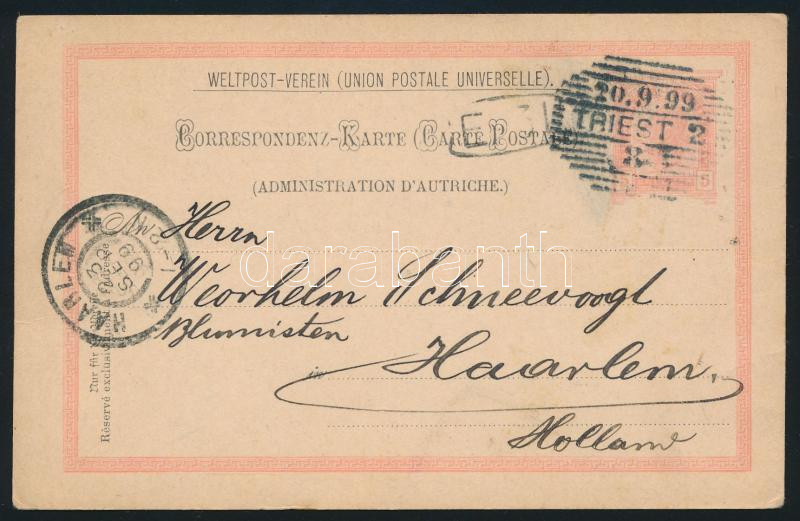 WELTPOST-VEREIN (UNION POSTALE UNIVERSELLE).
CORRESPONDENZ-KARTE (CARTE POSTALE)
(ADMINISTRATION D'AUTRICHE.)
20.9.99
TRIEST 2
5
An Herrn
Weorhelm Schneevoogt
Blumisten
in Haarlem,
Holland
HAARLEM
SEP
99
Nur für
Adresse
Réservé exclusivement
darabanth